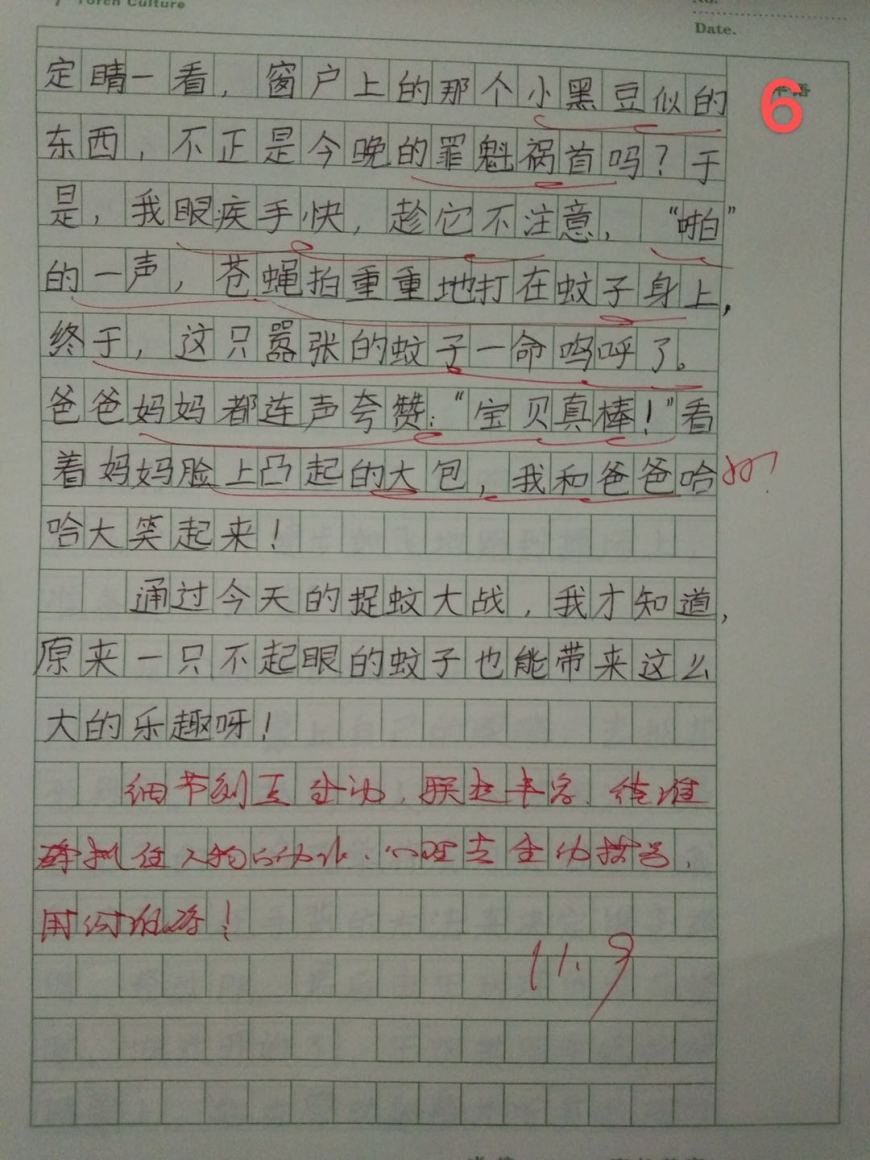 Torch Culture
No.
Date.
6
定睛一看，窗户上的那个小黑豆似的
东西，不正是今晚的罪魁祸首吗？于
是，我眼疾手快，趁它不注意，“啪”
的一声，苍蝇拍重重地打在蚊子身上，
终于，这只嚣张的蚊子一命呜呼了。
爸爸妈妈都连声夸赞：“宝贝真棒！”看
着妈妈脸上凸起的大包，我和爸爸哈
哈大笑起来！
通过今天的捉蚊大战，我才知道，
原来一只不起眼的蚊子也能带来这么
大的乐趣呀！
细节刻画生动，联想丰富，能准
确抓住人物的动作、心理去生动描写，
用词准确！
11.9